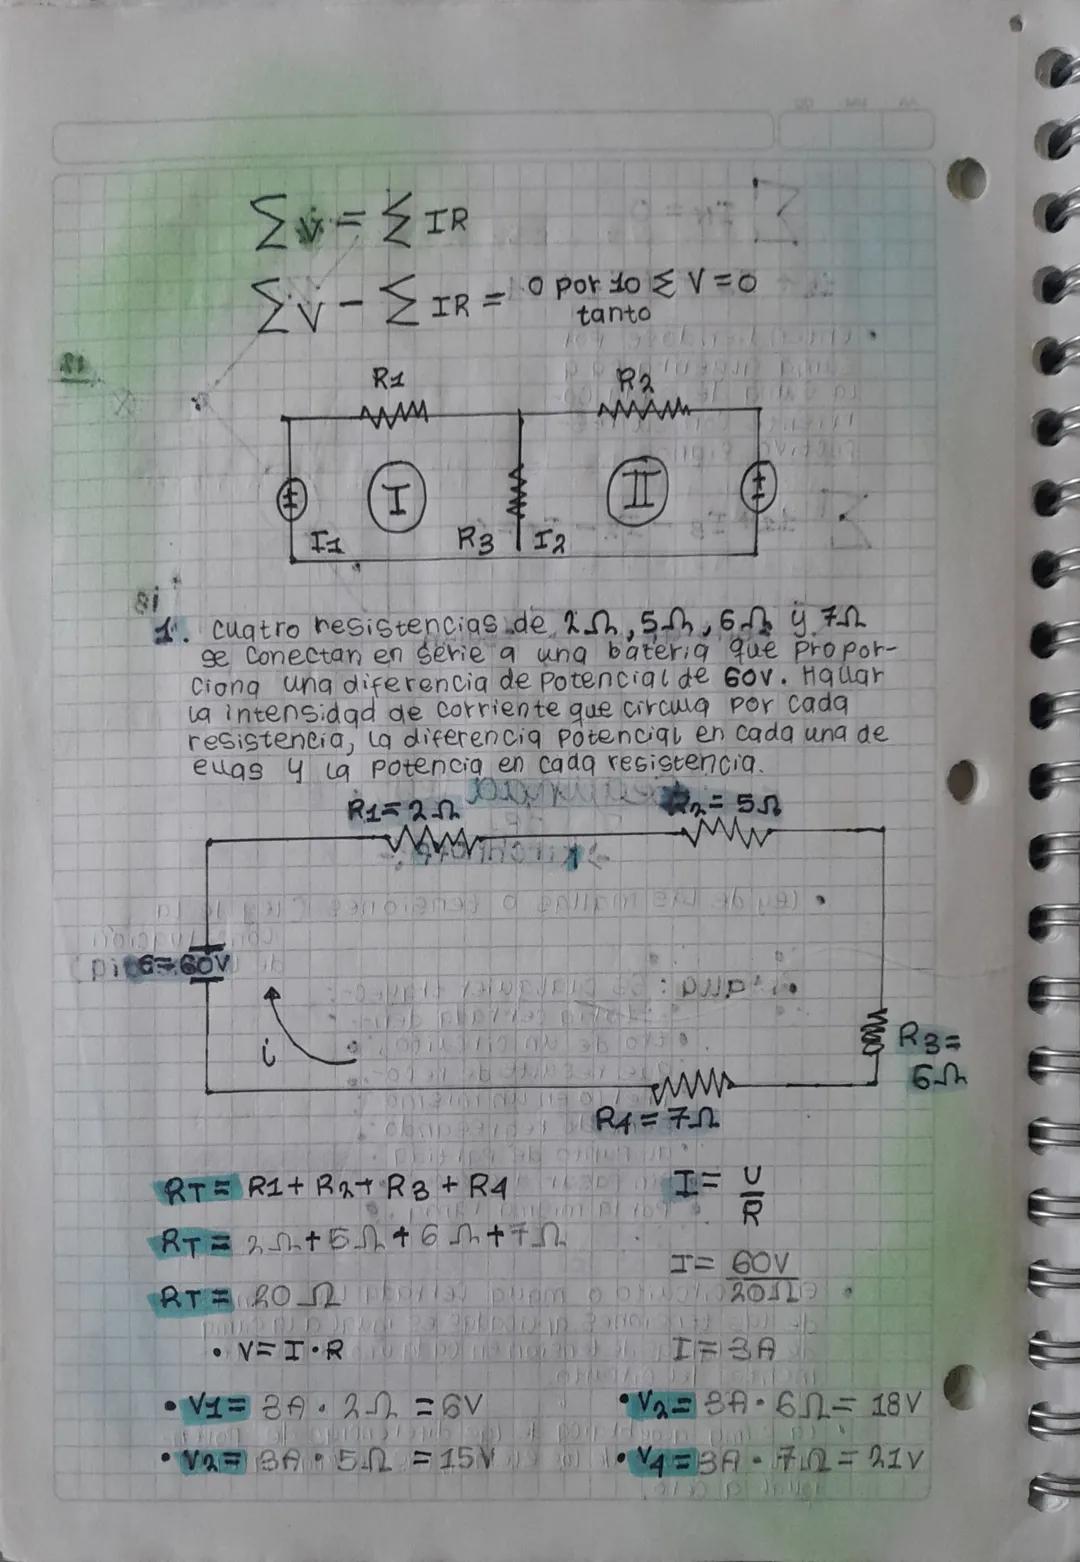 ∑ V = ∑ IR
∑ V - ∑ IR = 0 por lo ∑ V = 0
tanto
R1 R2
I II
I1 R3 I2
1. cuatro resistencias de 2Ω, 5Ω, 6Ω y 7Ω
se conectan en serie a una bateria que propor-
ciona una diferencia de potencial de 60V. Hallar
la intensidad de corriente que circula por cada
resistencia, la diferencia potencial en cada una de
ellas y la potencia en cada resistencia.
R1= 2Ω R2= 5Ω
6= 60V
i
R3=
6Ω
R4= 7Ω
RT= R1+ R2+ R3 + R4 I= U/R
RT= 2Ω+5Ω+6Ω+7Ω I= 60V/20Ω
RT= 20Ω
• V= I·R I= 3A
• V1= 3A · 2Ω = 6V • V2= 3A · 6Ω= 18V
• V2= 3A · 5Ω = 15V • V4= 3A · 7Ω= 21V